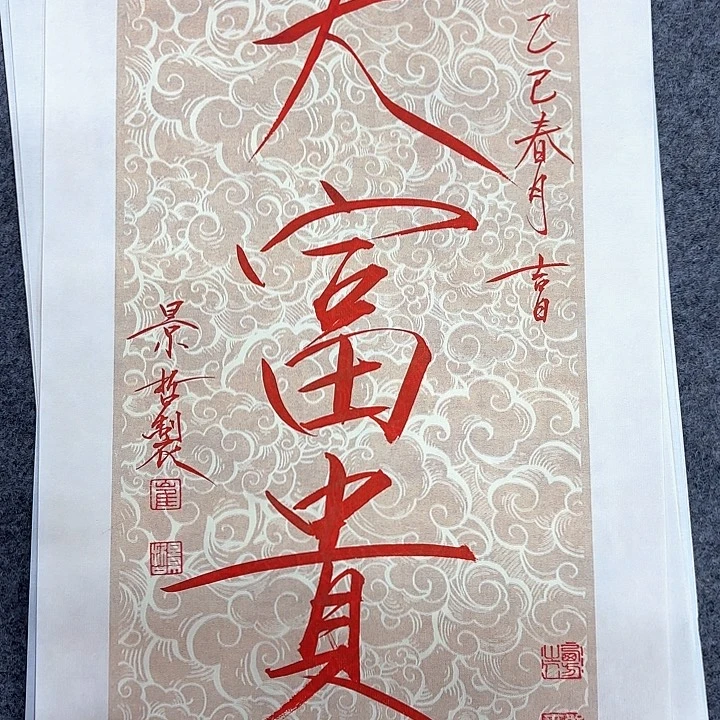 乙巳春月 吉日
大富貴
景哲製